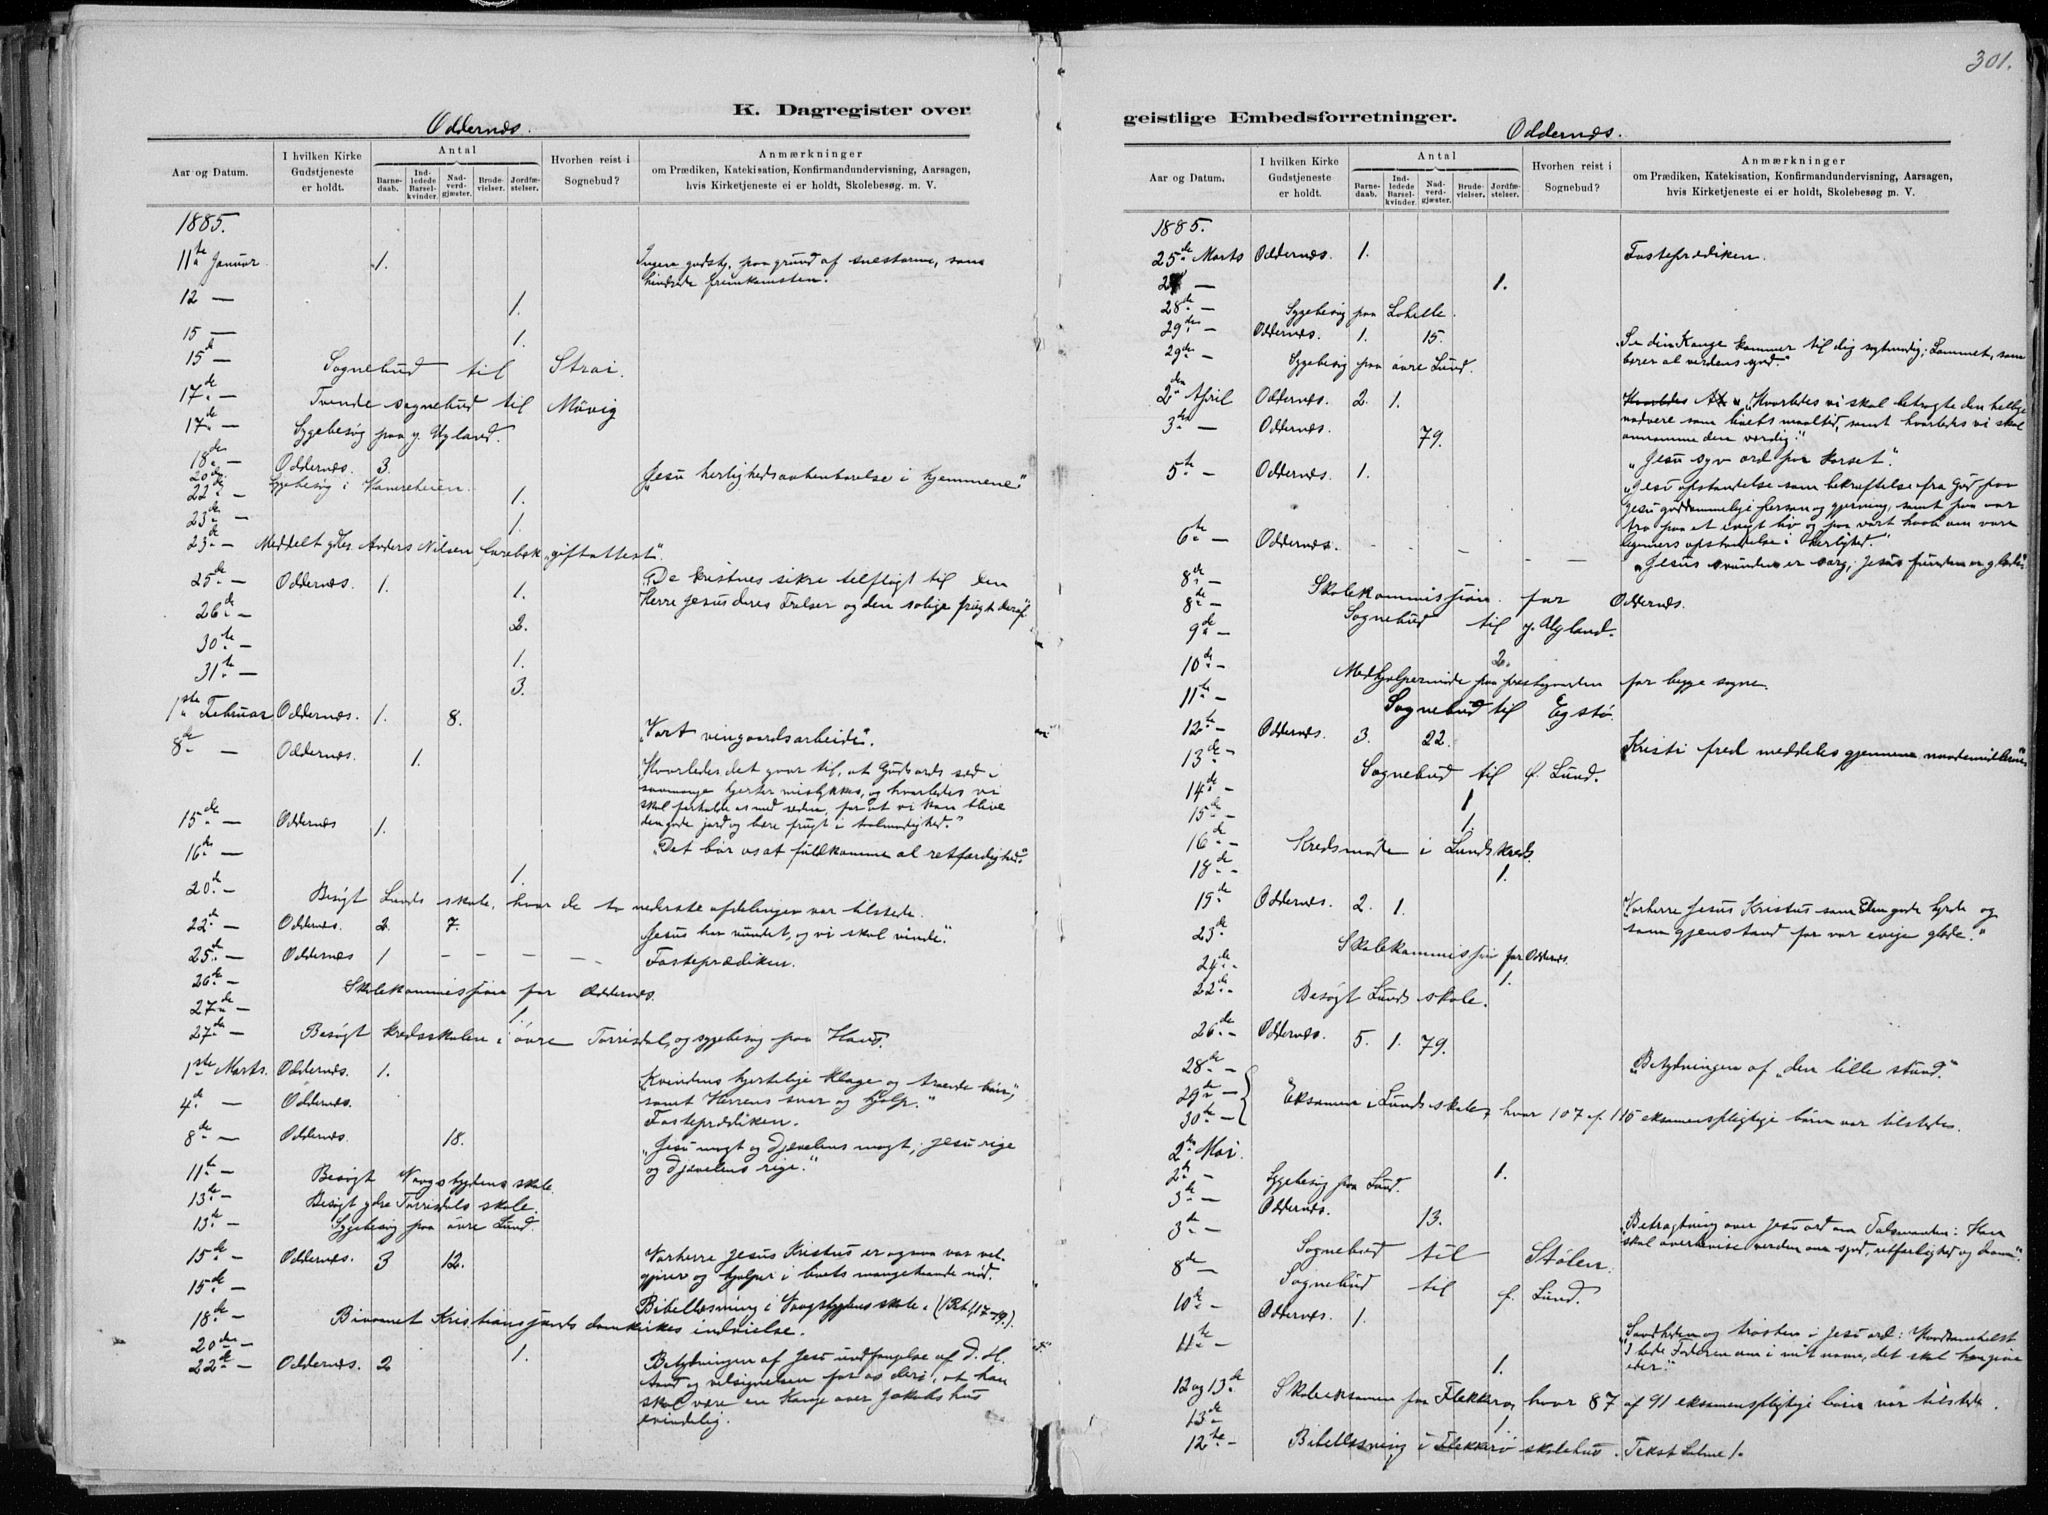 301.
K. Dagregister over
Oddernæs.
Aar og Datum.
I hvilken Kirke Gudstjeneste er holdt.
Antal
Barnedaab.
Indledede Barselkvinder.
Nadverdgjæster.
Brudevielser.
Jordfæstelser.
Hvorhen reist i Sognebud?
Anmærkninger
om Prædiken, Katekisation, Konfirmandundervisning, Aarsagen,
hvis Kirketjeneste ei er holdt, Skolebesøg. m. V.
1885.
11te Januar 1. Ingen gudstj. paa grund af snestorm, som
hindrede fremkomsten.
12 — 1.
15 — 1.
15de — Sognebud til Strai.
17de — Tvende sognebud til Møvig
17de — Sygebesøg paa y. Ugland.
18de — Oddernæs. 3. „Jesu herligheds aabenbarelse i hjemmene“
20de Sygebesøg i
22de — 1.
23de — 1.
23de — Meddelt Anders Nilsen „giftattest“.
25de — Oddernæs. 1. 1. „De kristnes sikre tilflugt til den
Herre Jesus deres Frelser og den salige frugt deraf“
26de — 2.
30te — 1.
31te — 3.
1ste Februar Oddernæs. 1. 8. „Vort vingaardsarbeide“.
8de — Oddernæs. 1. „Hvorledes det gaar til, at Guds ords sæd i
saamange hjerter mislykkes, og hvorledes vi
skal forholde os med sæden, for at vi kan blive
den gode jord og bære frugt i taalmodighed.“
15de — Oddernæs 1. „Det bør os at fuldkomme al retfærdighed.“
16de — 1.
20de — Besøgt Lunds skole, hvor de to nederste afdelinger var tilstede.
22de — Oddernæs. 2. 7. „Jesus har vundet, og vi skal vinde“.
25de — Oddernæs 1 — — — — Fasteprædiken.
26de — Skolekommission for Oddernæs.
27de — 1.
27de — Besøgt kredsskolen i øvre Torrisdal, og sygebesøg paa
1ste Marts. Oddernæs. 1. „Kvindens hjertelige klage og troende bøn,
samt Herrens svar og hjælp.“
4de — Oddernæs. Fasteprædiken.
8de — Oddernæs. 18. „Jesu magt og Djævelens magt; Jesu rige
og Djævelens rige.“
11te — Besøgt Vaagsbygdens skole.
13de — Besøgt ydre Torrisdals skole.
13de — Sygebesøg paa øvre Lund.
15de — Oddernæs. 3 12. Vorherre Jesus Kristus er ogsaa vor vel-
gjører og hjælper i livets mangehaande nød.
15de — Bibellæsning i Vaagsbygdens skole.
18de — Bivaanet Kristianssands domkirkes indvielse.
20de — 1.
22de — Oddernæs. 2 Betydningen af Jesu undfangelse af D. H.
Aand og velsignelsen for os deri, at han
skal være en Konge over Jakobs hus
evindelig.
geistlige Embedsforretninger.
Oddernæs.
Aar og Datum.
I hvilken Kirke Gudstjeneste er holdt.
Antal
Barnedaab.
Indledede Barselkvinder.
Nadverdgjæster.
Brudevielser.
Jordfæstelser.
Hvorhen reist i Sognebud?
Anmærkninger
om Prædiken, Katekisation, Konfirmandundervisning, Aarsagen,
hvis Kirketjeneste ei er holdt, Skolebesøg m. V.
1885.
25de Marts Oddernæs. 1. Fasteprædiken.
— 1.
28de — Sygebesøg paa
29de — Oddernæs. 1. 15. „Se din Konge kommer til dig sagtmodig; Lammet, som
bærer al verdens synd.“
29de — Sygebesøg paa øvre Lund.
2den April Oddernæs. 2. 1. „Hvorledes vi skal betragte den hellige
nadvere som livets maaltid, samt hvorledes vi skal
annamme den værdig.“
3die — Oddernæs. 79. „Jesu syv ord paa korset“.
5te — Oddernæs. 1. „Jesu opstandelse som bekræftelse fra Gud paa
Jesu guddommelige person og gjerning, samt paa vor
tro paa et evigt liv og paa vort haab om vore
legemers opstandelse i herlighed.“
6te — Oddernæs. — — — — — „Jesus svunden er sorg; Jesus funden er glæde“
8de — Skolekommission for Oddernæs.
8de — Sognebud til y. Ugland.
9de — 2.
10de — Medhjælpermøde paa prestegaarden for begge sogne.
11te — Sognebud til Egstø.
12te — Oddernæs. 3. 22. Kristi fred meddeles gjennem naademidlerne“
13de — Sognebud til f. Lund.
14de — 1
15de — 1.
16de — Kredsmøde i Lunds kreds.
18de — 1.
19de Oddernæs. 2. 1. „Vorherre Jesus Kristus som den gode hyrde og
som gjenstand for vor evige glæde.“
23de Skolekommission for Oddernæs.
24de — 1.
22de — Besøgt Lunds skole.
26de — Oddernæs. 5. 1. 79. „Betydningen af „den lille stund“.“
28de —
29de —
30te — Eksamen i Lunds skole, hvor 107 af 115 eksamenspligtige børn var tilstede.
2den Mai. 1.
2den — Sygebesøg paa Lund.
3die — Oddernæs. 13. „Betragtning over Jesu ord om Talsmanden: Han
skal overbevise verden om synd, retfærdighed og dom“.
3die — Sognebud til Stølen.
8de — Sognebud til f. Lund.
10de — Oddernæs. 1. „Sandheden og trøsten i Jesu ord: Hvadsomhelst
I bede Faderen om i mit navn, det skal han give
eder.“
11te — 1.
12 og 13de Skoleeksamen paa Flekkerø, hvor 87 af 91 eksamenspligtige børn var tilstede.
13de — 1.
12te — Bibellæsning i Flekkerø skolehus. Tekst Salme 1.